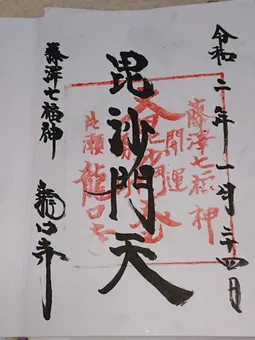 令和二年一月二十四日
藤澤七福神
開運
毘沙門天
片瀬
龍口寺
藤澤七福神
龍口寺